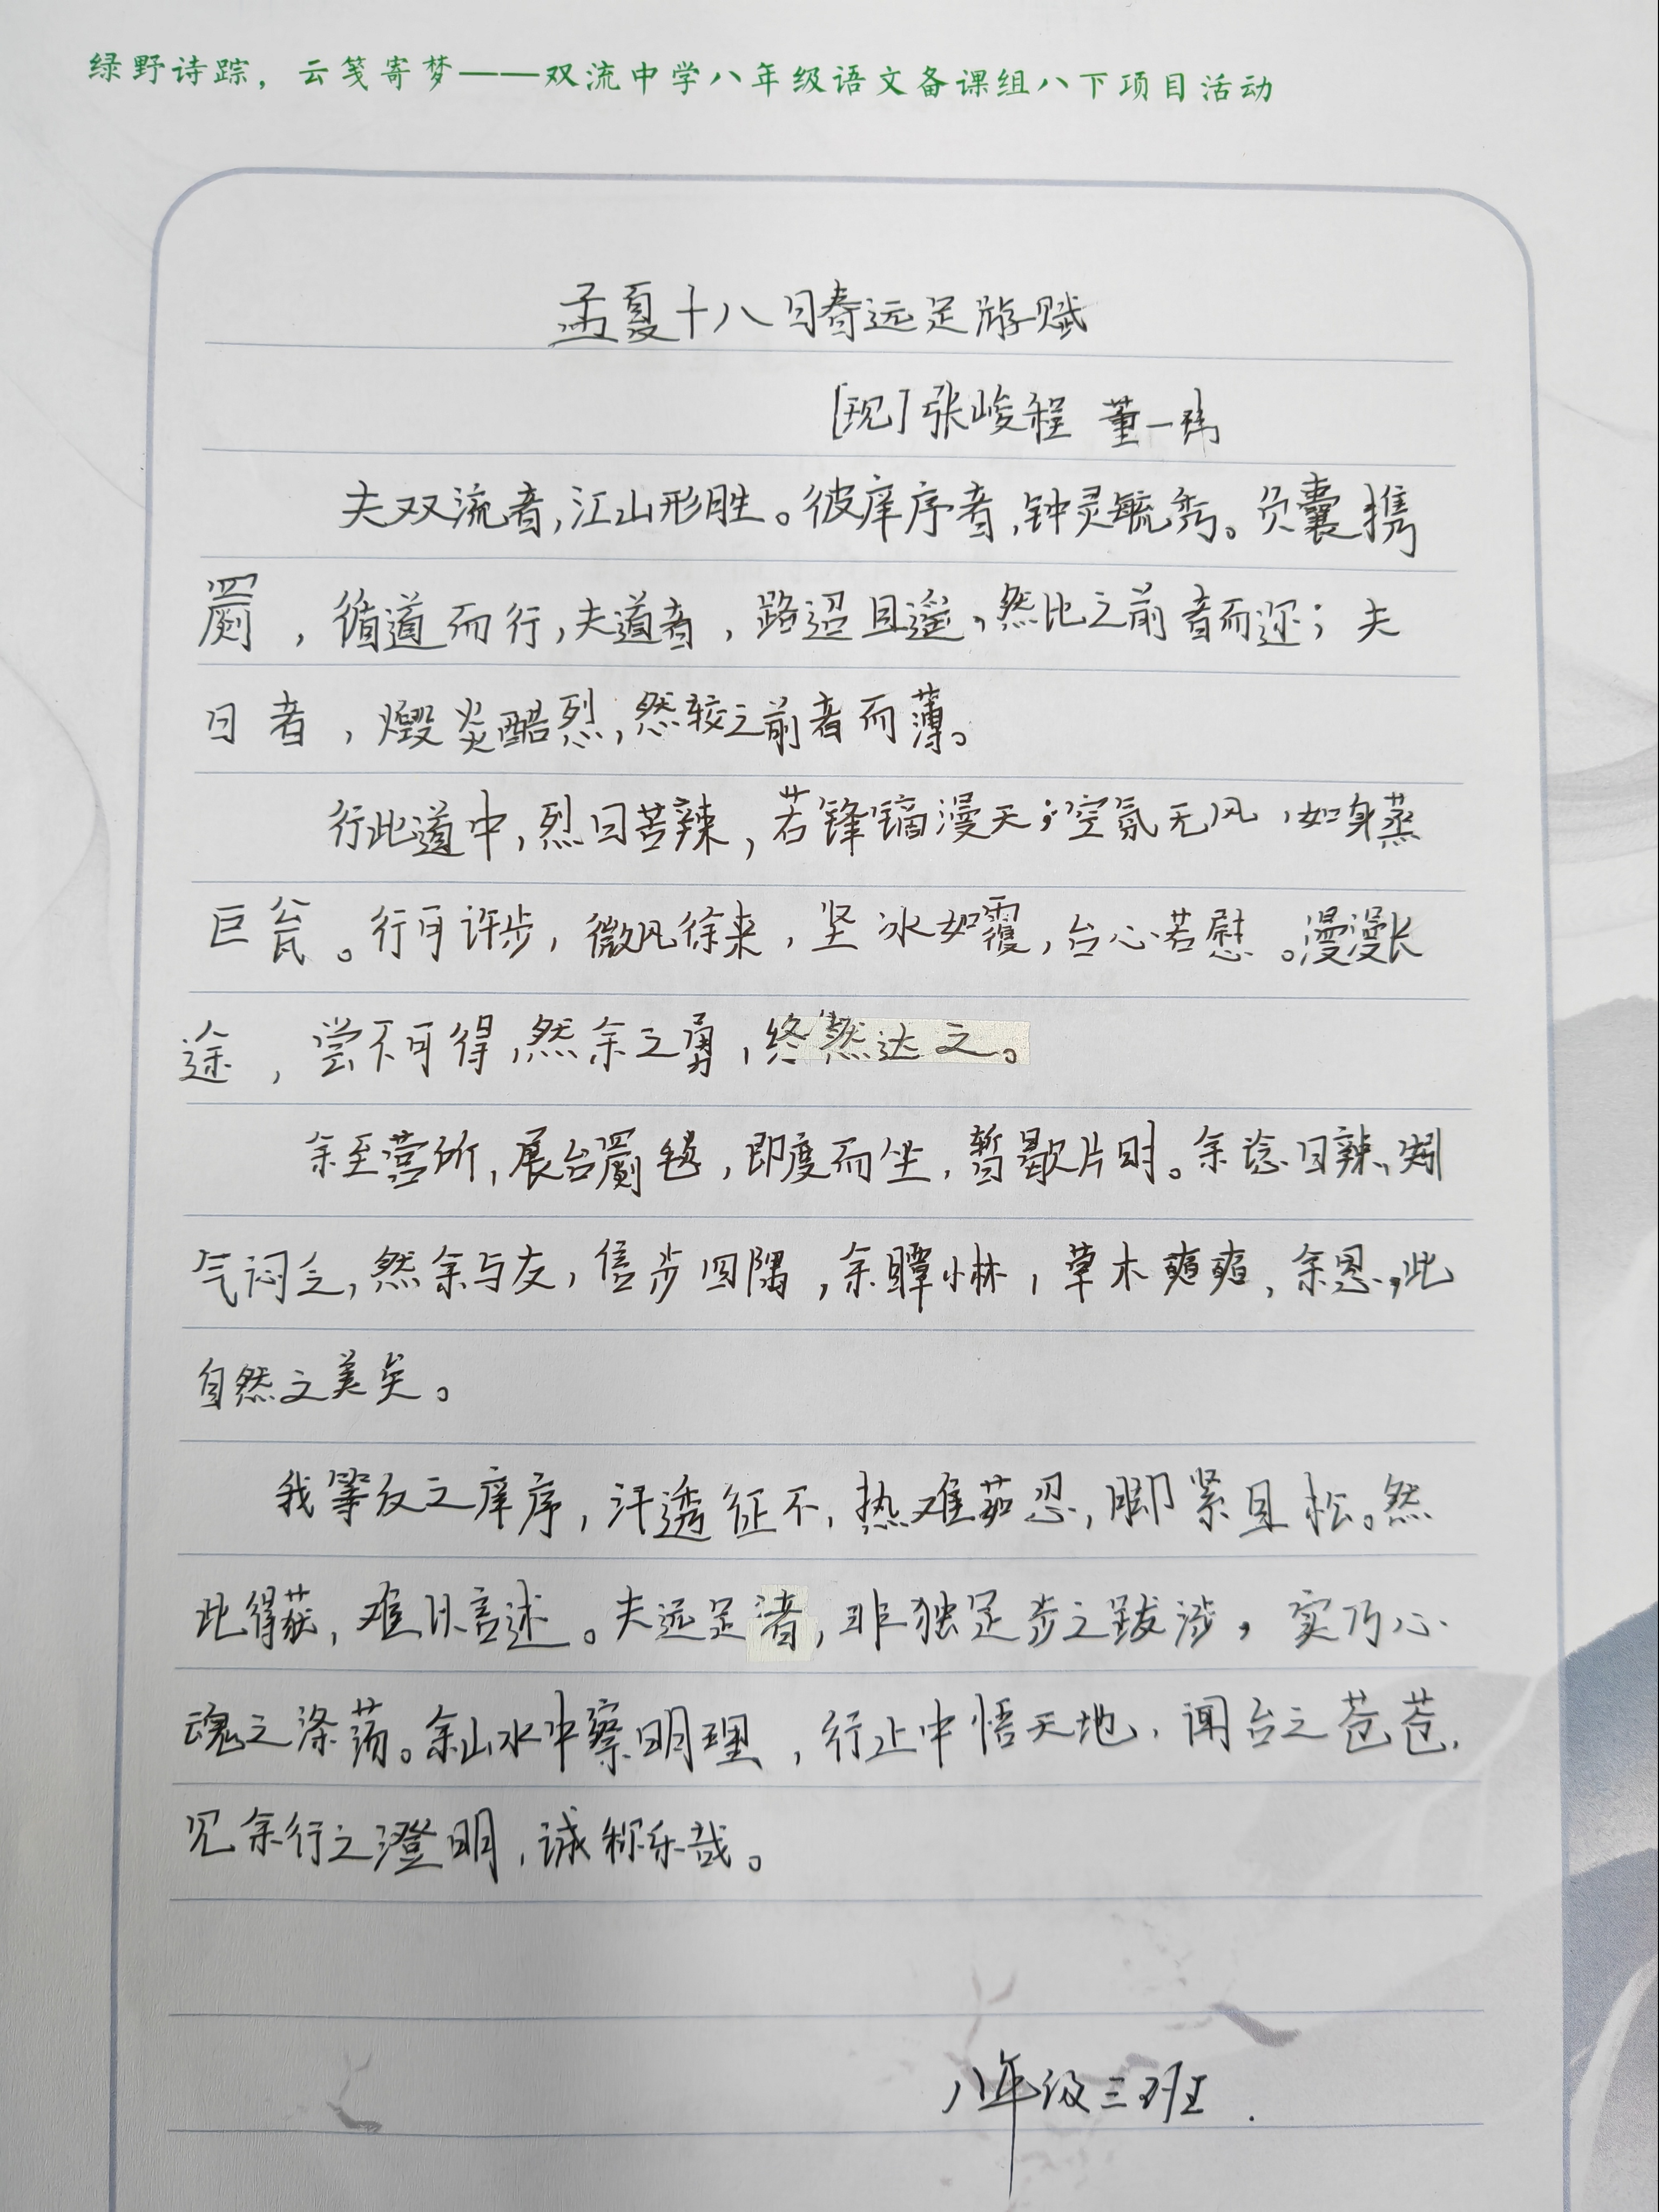 绿野诗踪，云笺寄梦——双流中学八年级语文备课组八下项目活动
孟夏十八日春远足游赋
[现]张峻程 董一祎
夫双流者，江山形胜。彼庠序者，钟灵毓秀。负囊携
罽，循道而行，夫道者，路迢且遥，然比之前者而迩；夫
日者，燬炎酷烈，然较之前者而薄。
行此道中，烈日苦辣，若锋镝漫天；空氛无风，如身蒸
巨瓮。行可许步，微风徐来，坚冰如覆，台心若慰。漫漫长
途，尝不可得，然余之勇，终然达之。
余至营所，展台罽毯，即度而坐，暂歇片时。余谂日辣，
气闷之，然余与友，信步四隅，余瞫小林，草木奭奭，余恩，此
自然之美矣。
我等反之庠序，汗透征不，热难茹忍，脚紧且松。然
此得获，难以言述。夫远足者，非独足步之跋涉，实乃心
魂之涤荡。余山水中察明理，行止中悟天地，闻台之苍苍，
见余行之澄明，诚称乐哉。
八年级三班.